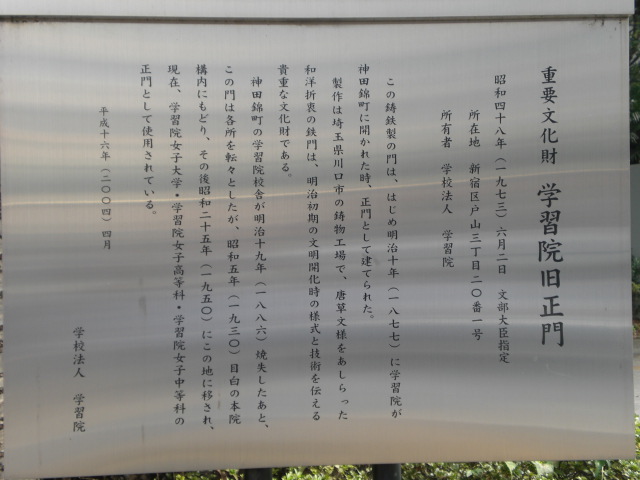 重要文化財　学習院旧正門
昭和四十八年（一九七三）六月二日　文部大臣指定
所在地　新宿区戸山三丁目二〇番一号
所有者　学校法人　学習院
この鋳鉄製の門は、はじめ明治十年（一八七七）に学習院が
神田錦町に開かれた時、正門として建てられた。
製作は埼玉県川口市の鋳物工場で、唐草文様をあしらった
和洋折衷の鉄門は、明治初期の文明開化時の様式と技術を伝える
貴重な文化財である。
神田錦町の学習院校舎が明治十九年（一八八六）焼失したあと、
この門は各所を転々としたが、昭和五年（一九三〇）目白の本院
構内にもどり、その後昭和二十五年（一九五〇）にこの地に移され、
現在、学習院女子大学・学習院女子高等科・学習院女子中等科の
正門として使用されている。
平成十六年（二〇〇四）四月
学校法人　学習院